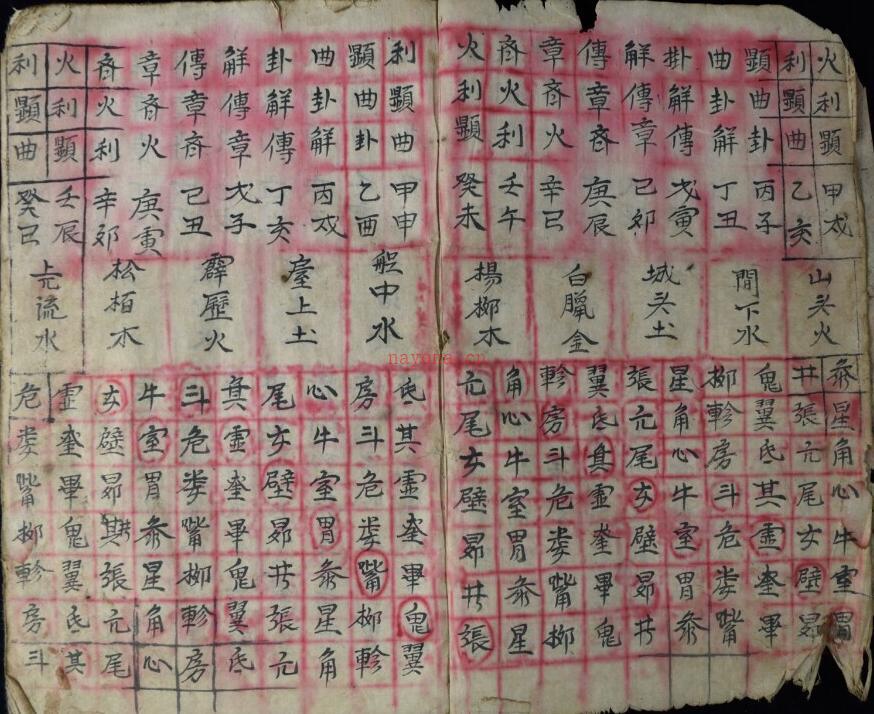 火利顯甲戌
利顯曲乙亥
顯曲卦丙子
曲卦解丁丑
掛解傳戊寅
解傳章己卯
傳章斉庚辰
章斉火辛巳
斉火利壬午
火利顯癸未
山头火
間下水
城头土
白臘金
楊柳木
参星角心牛室胃
井張亢尾女壁昴
鬼翼氐其虚奎畢
柳軫房斗危娄嘴
星角心牛室胃参
張亢尾女壁昴井
翼氐其虚奎畢鬼
軫房斗危娄嘴柳
角心牛室胃参星
亢尾女壁昴井張
利顯曲甲申
顯曲卦乙酉
曲卦解丙戌
卦解傳丁亥
解傳章戊子
傳章斉己丑
章斉火庚寅
斉火利辛卯
火利顯壬辰
利顯曲癸巳
舩中水
臺上土
霹靂火
松栢木
流水
氐其虚奎畢鬼翼
房斗危娄嘴柳軫
心牛室胃参星角
尾女壁昴井張亢
其虚奎畢鬼翼氐
斗危娄嘴柳軫房
牛室胃参星角心
女壁昴其井張亢尾
虚奎畢鬼翼氐其
危娄嘴柳軫房斗
nayone.cn